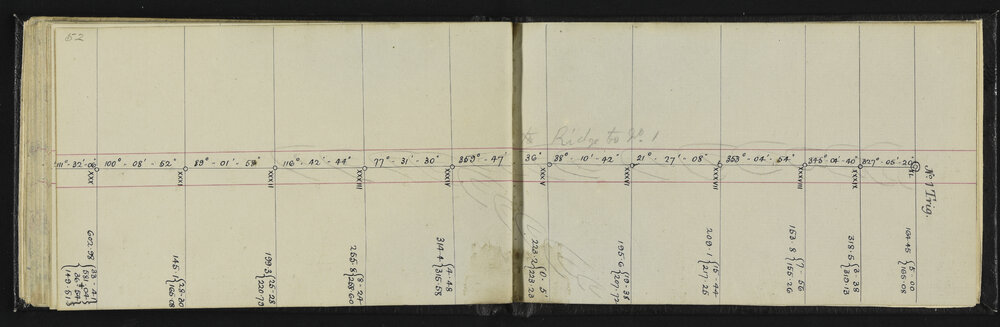 52
to Ridge to No. 1
111°-32'-0" 100°-08'-52" 89°-01'-58" 116°-42'-44" 77°-31'-30" 359°-47' 36" 38°-10'-42" 21°-27'-08" 353°-04'-54" 345°04'-40" 327°-05'-20"
XXX XXXI XXXII XXXIII XXXIV XXXV XXXVI XXXVII XXXVIII XXXIX XL
No. 1 Trig.
602·96 {33-41
145·1 {28-30 165·08
199·3 {25-28 220·79
255·8 {8-24 258·60
314·4 {4-48 315·58
223·2 {0-5' 223·23
195·6 {19-38 207·72
209·1 {15-44 217·25
153·8 {7-56 155·26
318·5 {3-38 319·13
164·45 {5-00 165·08